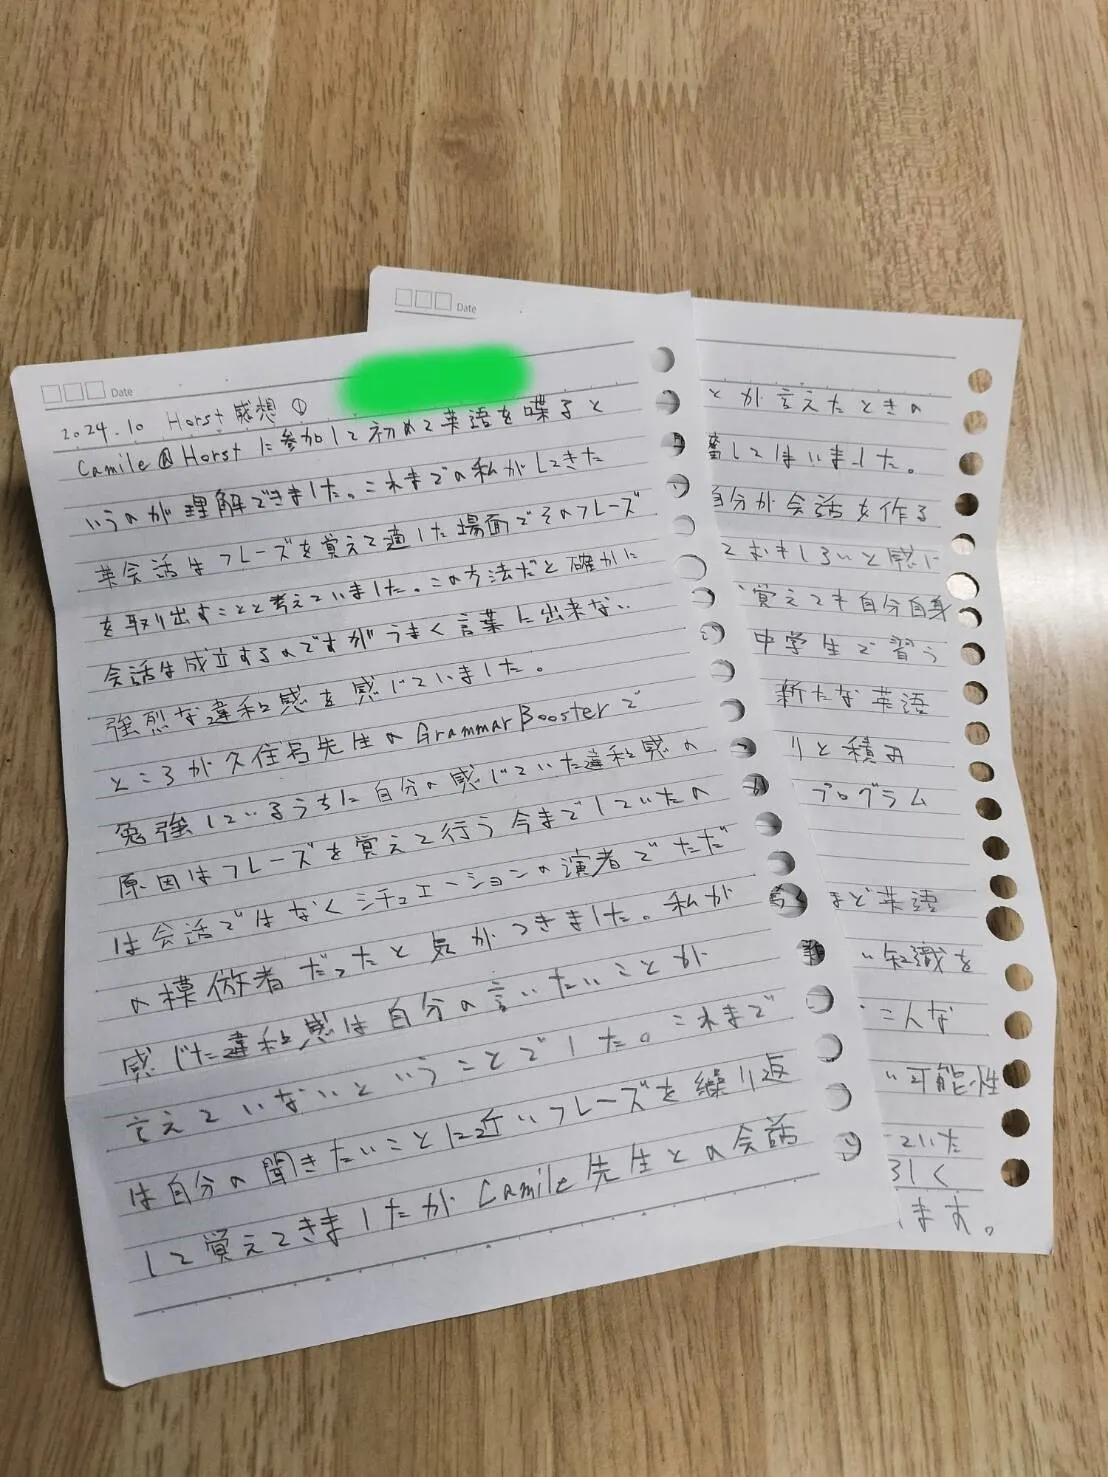 Date
2024.10 Horst 感想 ①
Camile@Horst に参加して初めて英語を喋ると
いうのが理解できました。これまでの私がしてきた
英会話はフレーズを覚えて適した場面でそのフレーズ
を取り出すことと考えていました。この方法だと確かに
会話は成立するのですがうまく言葉に出来ない
強烈な違和感を感じていました。
ところが久住呂先生のGrammarBoosterで
勉強しているうちに自分の感じていた違和感の
原因はフレーズを覚えて行う今までしていたの
は会話ではなくシチュエーションの演者でただ
の模倣者だったと気がつきました。私が
感じた違和感は自分の言いたいことが
言えていないということでした。これまで
は自分の聞きたいことに近いフレーズを繰り返
して覚えてきましたがCamile先生との会話
Date
とが言えたときの
してしまいました。
自分が会話を作る
ておもしろいと感じ
覚えても自分自身
中学生で習う
新たな英語
りと積み
プログラム
まど英語
い知識を
こんな
い可能性
ていた
しく
ます。